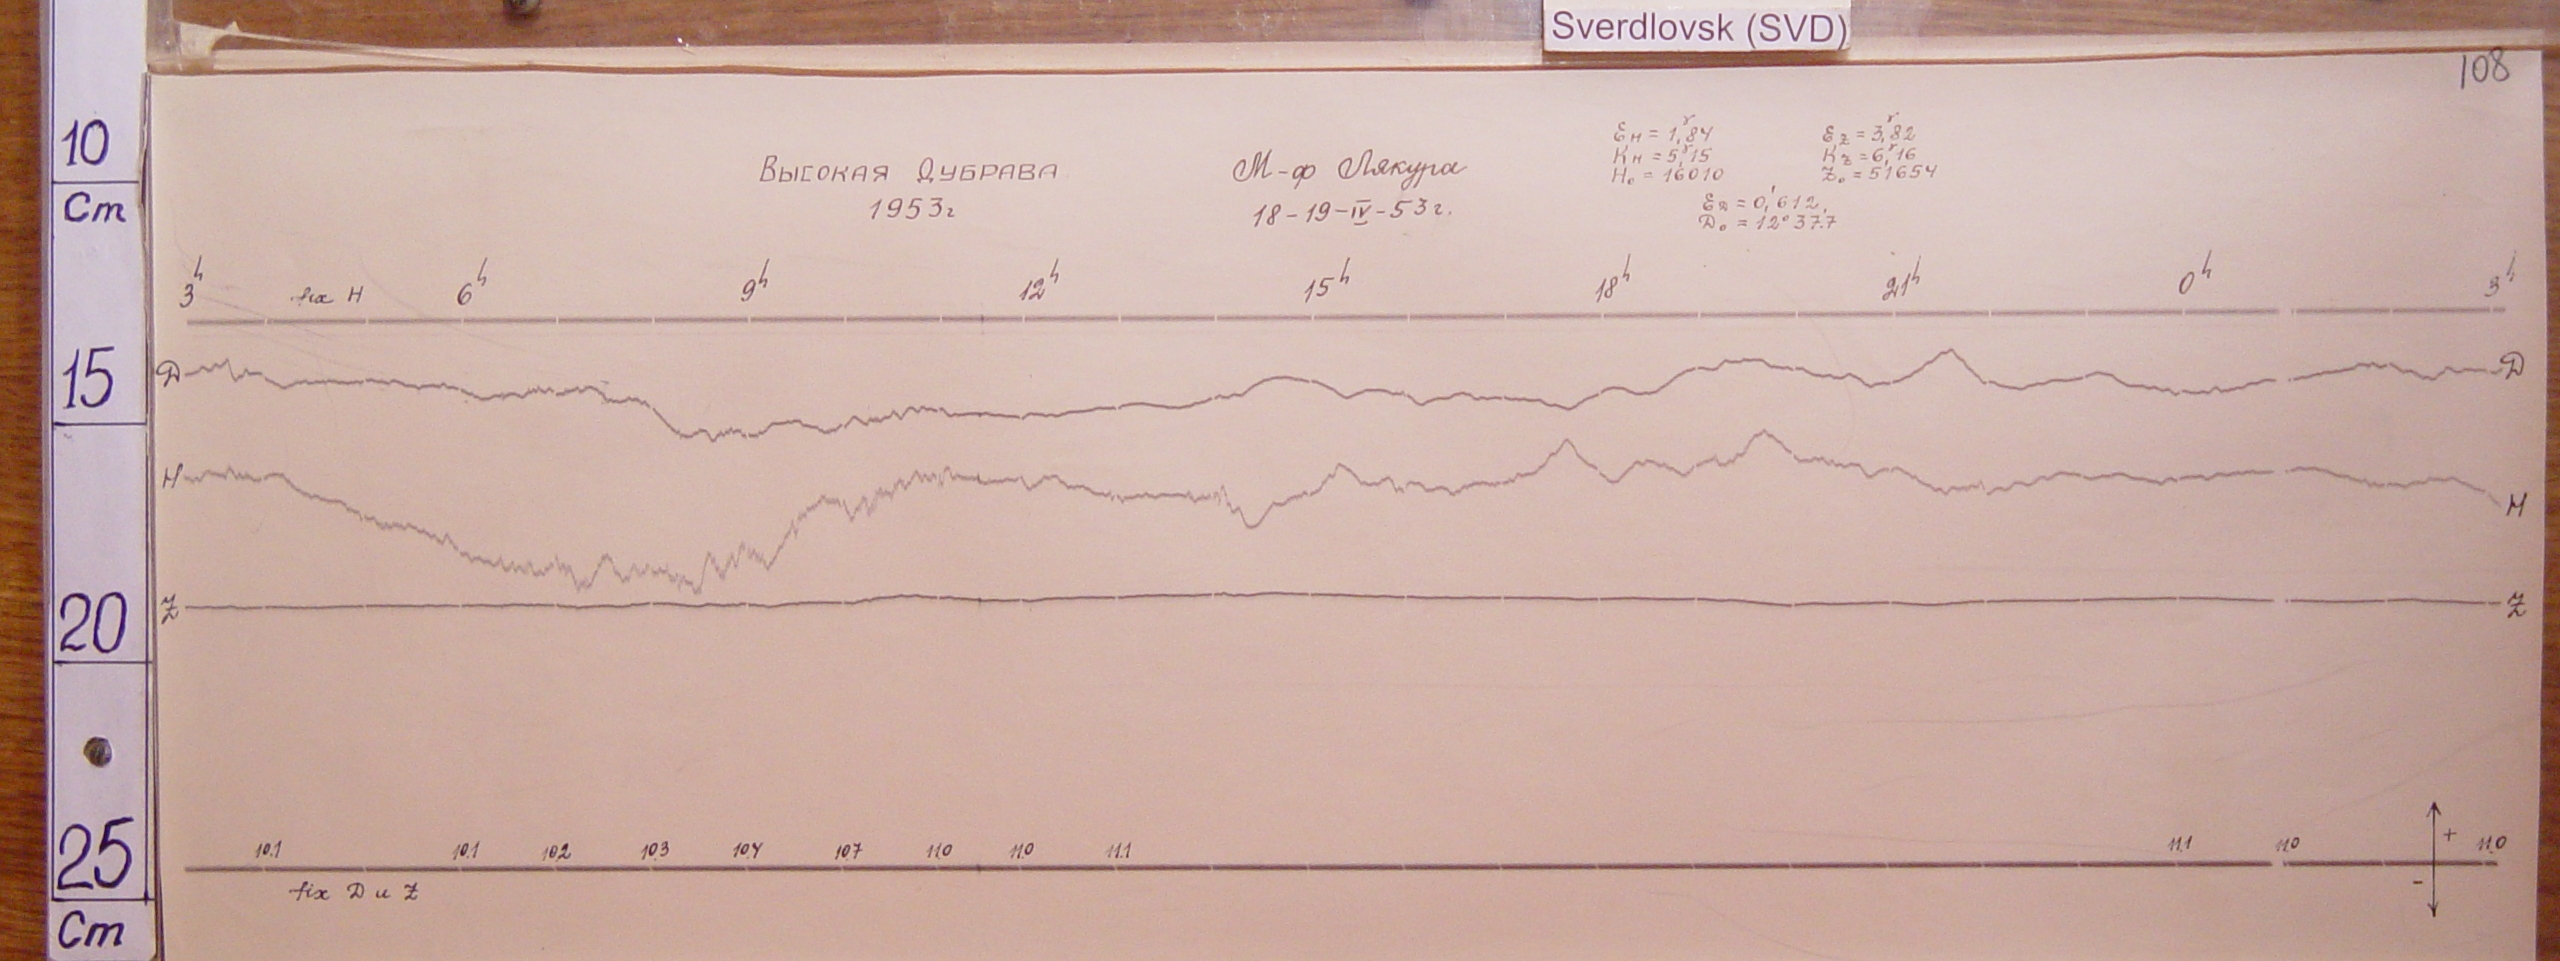 Sverdlovsk (SVD)
108
10
Cm
15
20
25
Cm
Высокая Дубрава
1953г
М-ф Лякура
18-19-IV-53г.
Ԑн = 1,84γ
Kн = 5,15γ
H₀ = 16010
Ԑz = 3,82γ
Kz = 6,16γ
Z₀ = 51654
ԐD = 0,'612
D₀ = 12°37.7
3h fix H 6h 9h 12h 15h 18h 21h 0h 3h
D D
H H
Z Z
10.1 10.1 10.2 10.3 10.4 10.7 11.0 11.0 11.1 11.1 11.0 11.0
+
-
fix D и Z